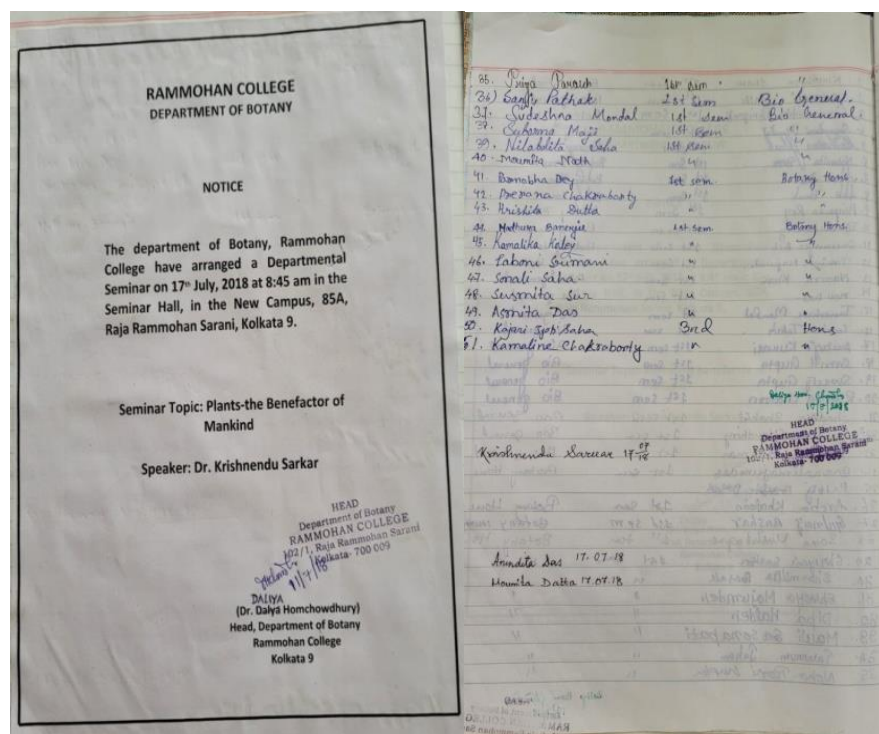 RAMMOHAN COLLEGE
DEPARTMENT OF BOTANY
NOTICE
The department of Botany, Rammohan
College have arranged a Departmental
Seminar on 17th July, 2018 at 8:45 am in the
Seminar Hall, in the New Campus, 85A,
Raja Rammohan Sarani, Kolkata 9.
Seminar Topic: Plants-the Benefactor of
Mankind
Speaker: Dr. Krishnendu Sarkar
HEAD
Department of Botany
RAMMOHAN COLLEGE
102/1, Raja Rammohan Sarani
Kolkata- 700 009
11/7/18
DALIYA
(Dr. Dalya Homchowdhury)
Head, Department of Botany
Rammohan College
Kolkata 9
35. Priya 1st sem "
36) Pathak 1st Sem Bio General.
37. Sudeshna Mondal 1st sem Bio General.
38. Subarna Maji 1st Sem "
39. Saha 1st Sem "
40. Moumita Nath " "
41. Dey 1st sem. Botany Hons.
42. Prerana Chakraborty " "
43. Hrishita Dutta " "
44. Banerjee 1st sem. Botany Hons.
45. Kamalika " "
46. Laboni " "
47. Sonali Saha " "
48. Susmita Sur " "
49. Asmita Das " "
50. Saha 3rd Hons
51. Kamaline Chakraborty " "
HEAD
Department of Botany
RAMMOHAN COLLEGE
102/1, Raja Rammohan Sarani
Kolkata- 700 009
Krishnendu Sarkar 17 07 18
Anindita Das 17.07.18
Moumita Datta 17.07.18